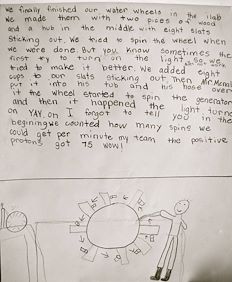 We finally finished our water wheels in the lab
We made them with two pices of wood
and a hub in the middle with eight slats
sticking out. We tried to spin the wheel when
we were done. But you know sometimes the
first try to turn on the light so we
tried to make it better. We added eight
cups to our slats sticking out. Then Mr.
put it into his tub and his hose over
it the wheel started to spin the generator
and then it happened the light turned
on YAY. oh I forgot to tell you in the
beginning we counted how many spins we
could get per minute my team the positive
protons got 75 wow!